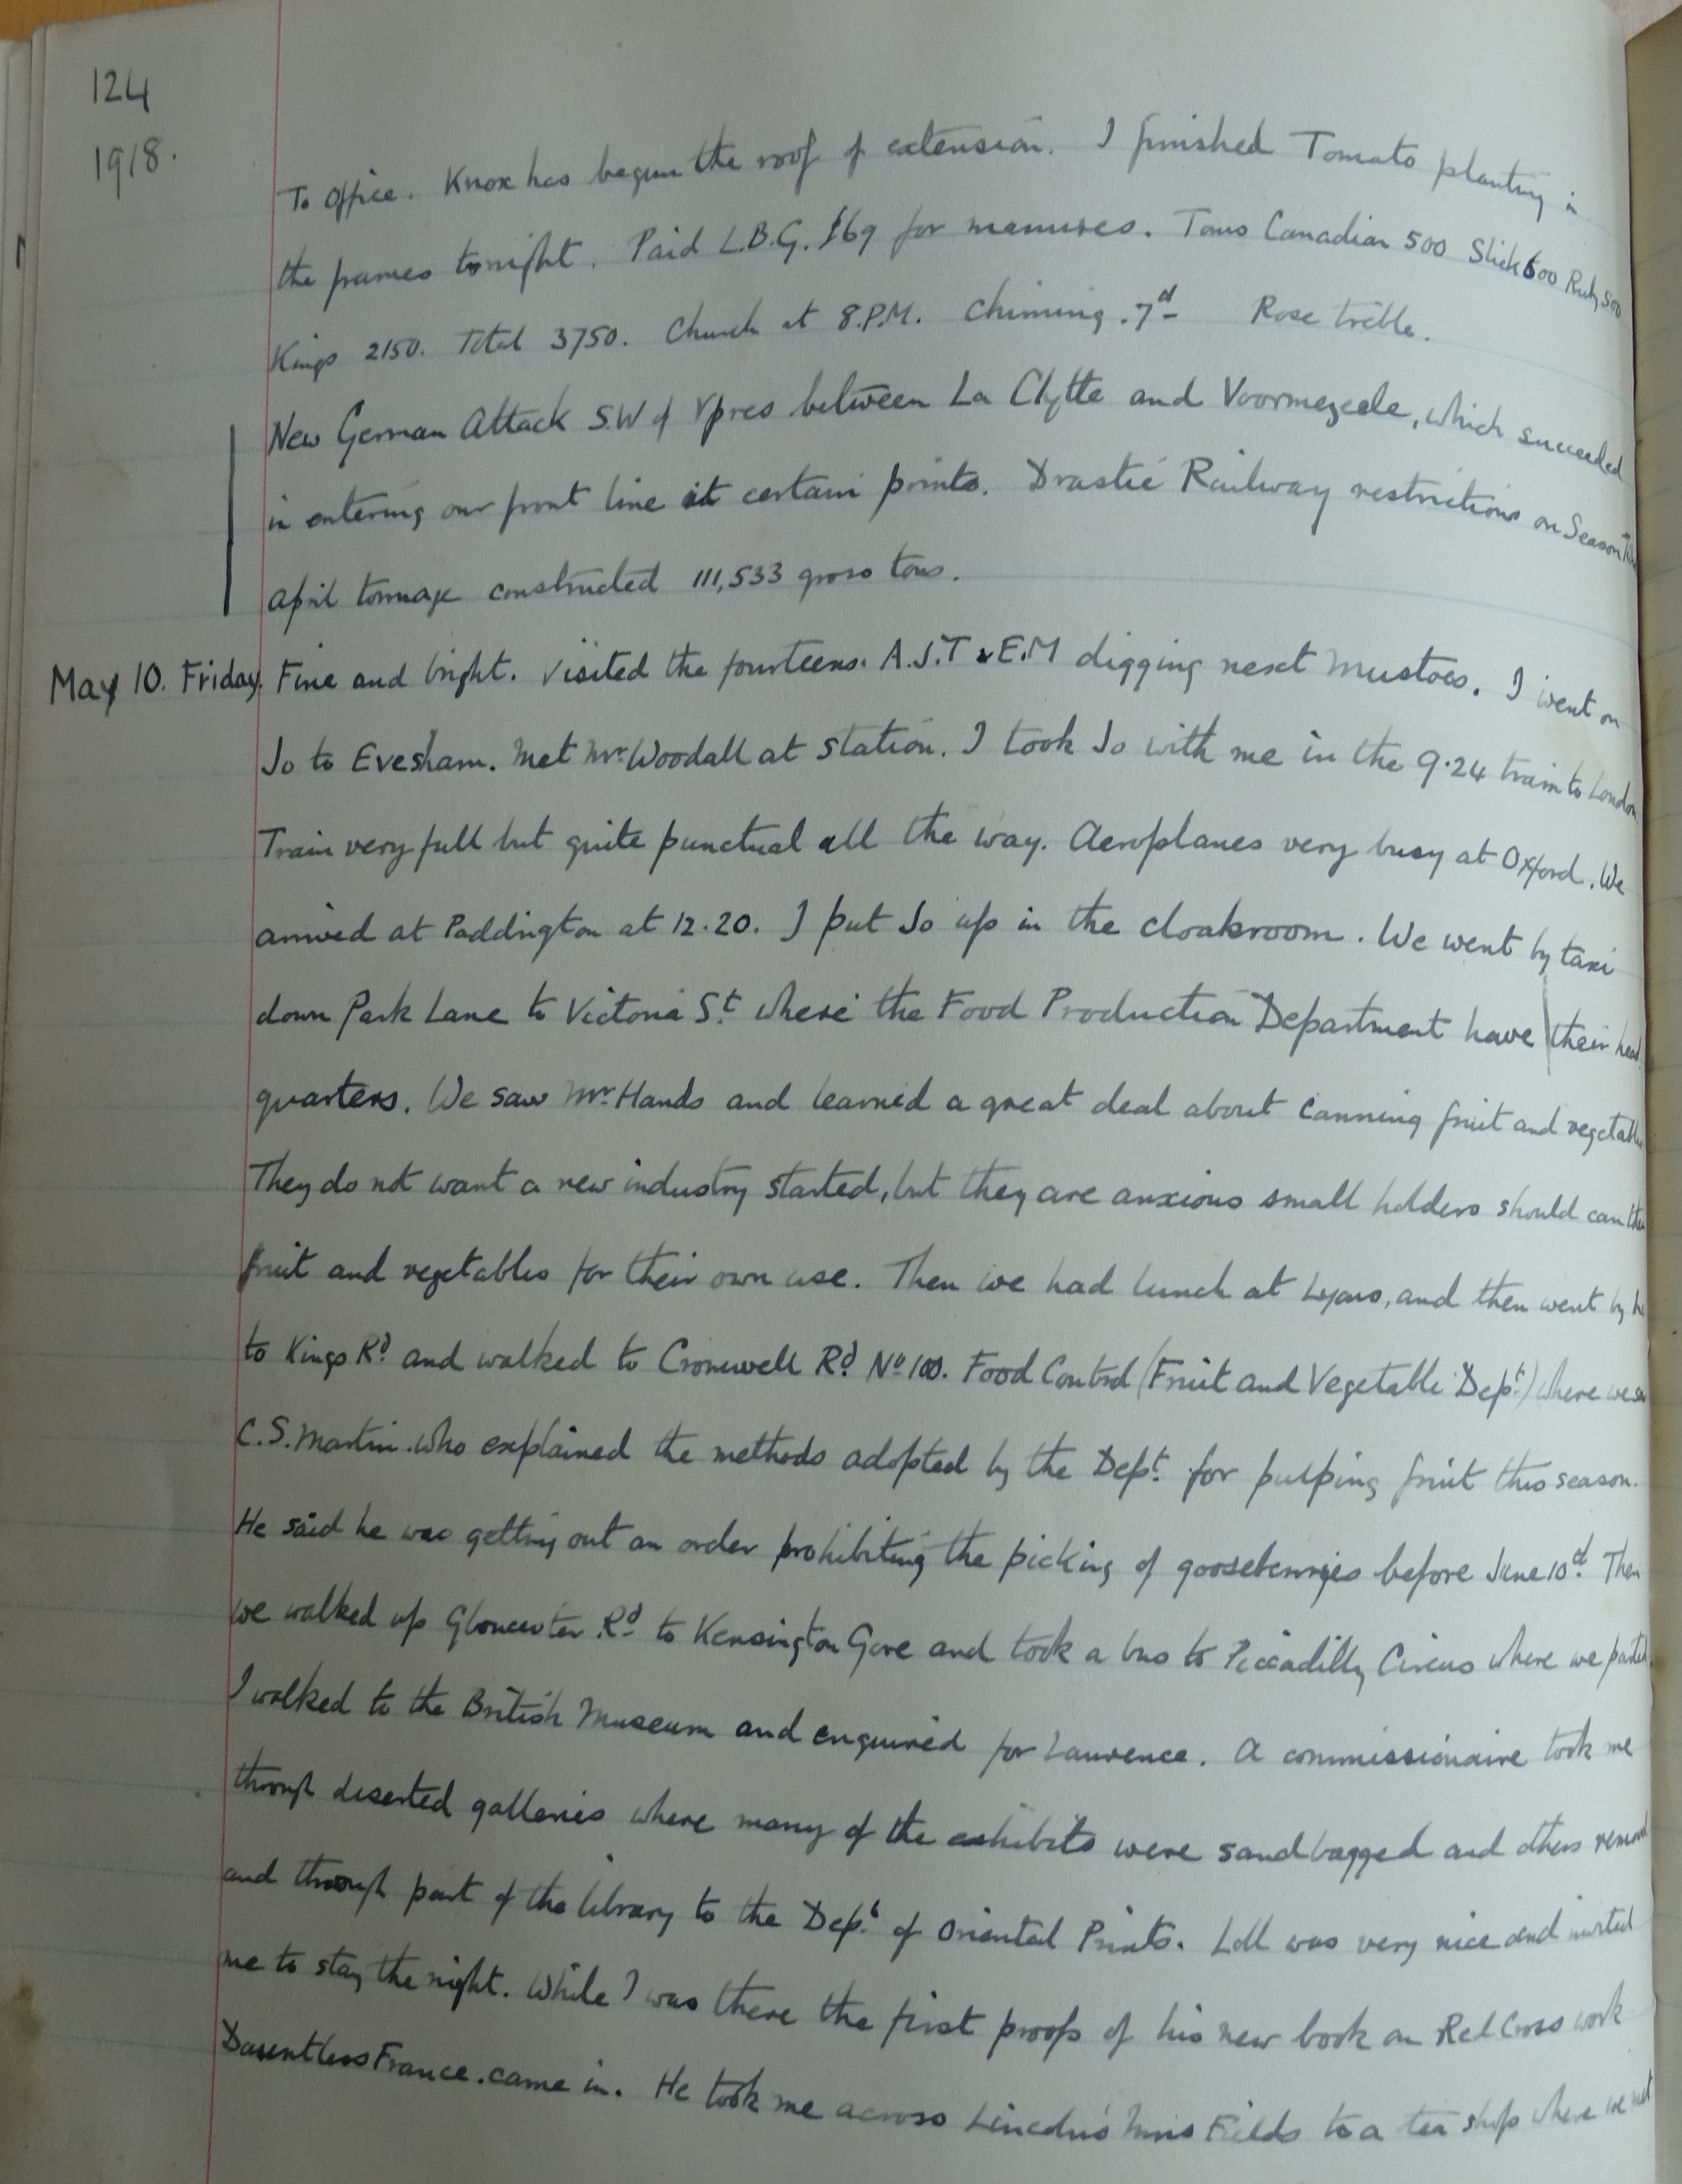 124
1918.
To Office. Knox has begun the roof of extension. I finished Tomato planting in
the frames tonight. Paid L.B.G. £69 for manures. Toms Canadian 500 Stick 600 Ruby 500
Kings 2150. Total 3750. Church at 8.P.M. Chiming .7d- Rose treble.
New German Attack S.W of Ypres between La Clytte and Voormezeele, which succeeded
in entering our front line at certain points. Drastic Railway restrictions on Season
April tonnage constructed 111,533 gross tons.
May 10. Friday. Fine and bright. Visited the fourteens. A.J.T & E.M digging next Mustoes. I went on
Jo to Evesham. Met Mr. Woodall at station. I took Jo with me in the 9.24 train to London
Train very full but quite punctual all the way. Aeroplanes very busy at Oxford. We
arrived at Paddington at 12.20. I put Jo up in the cloakroom. We went by taxi
down Park Lane to Victoria St. where the Food Production Department have their head
quarters. We saw Mr. Hands and learned a great deal about canning fruit and vegetables
They do not want a new industry started, but they are anxious small holders should can their
fruit and vegetables for their own use. Then we had lunch at Lyons, and then went by
to Kings Rd. and walked to Cromwell Rd. No 100. Food Control (Fruit and Vegetable Dept.) where we saw
C.S. Martin. who explained the methods adopted by the Dept. for pulping fruit this season.
He said he was getting out an order prohibiting the picking of gooseberries before June 10d. Then
we walked up Gloucester Rd to Kensington Gore and took a bus to Piccadilly Circus where we parted
I walked to the British Museum and enquired for Laurence. A commissionaire took me
through deserted galleries where many of the exhibits were sandbagged and others removed
and through part of the library to the Dept of Oriental Prints. Loll was very nice and invited
me to stay the night. While I was there the first proofs of his new book on Red Cross work
Dauntless France. came in. He took me across Lincoln's Inns Fields to a tea shop where we met